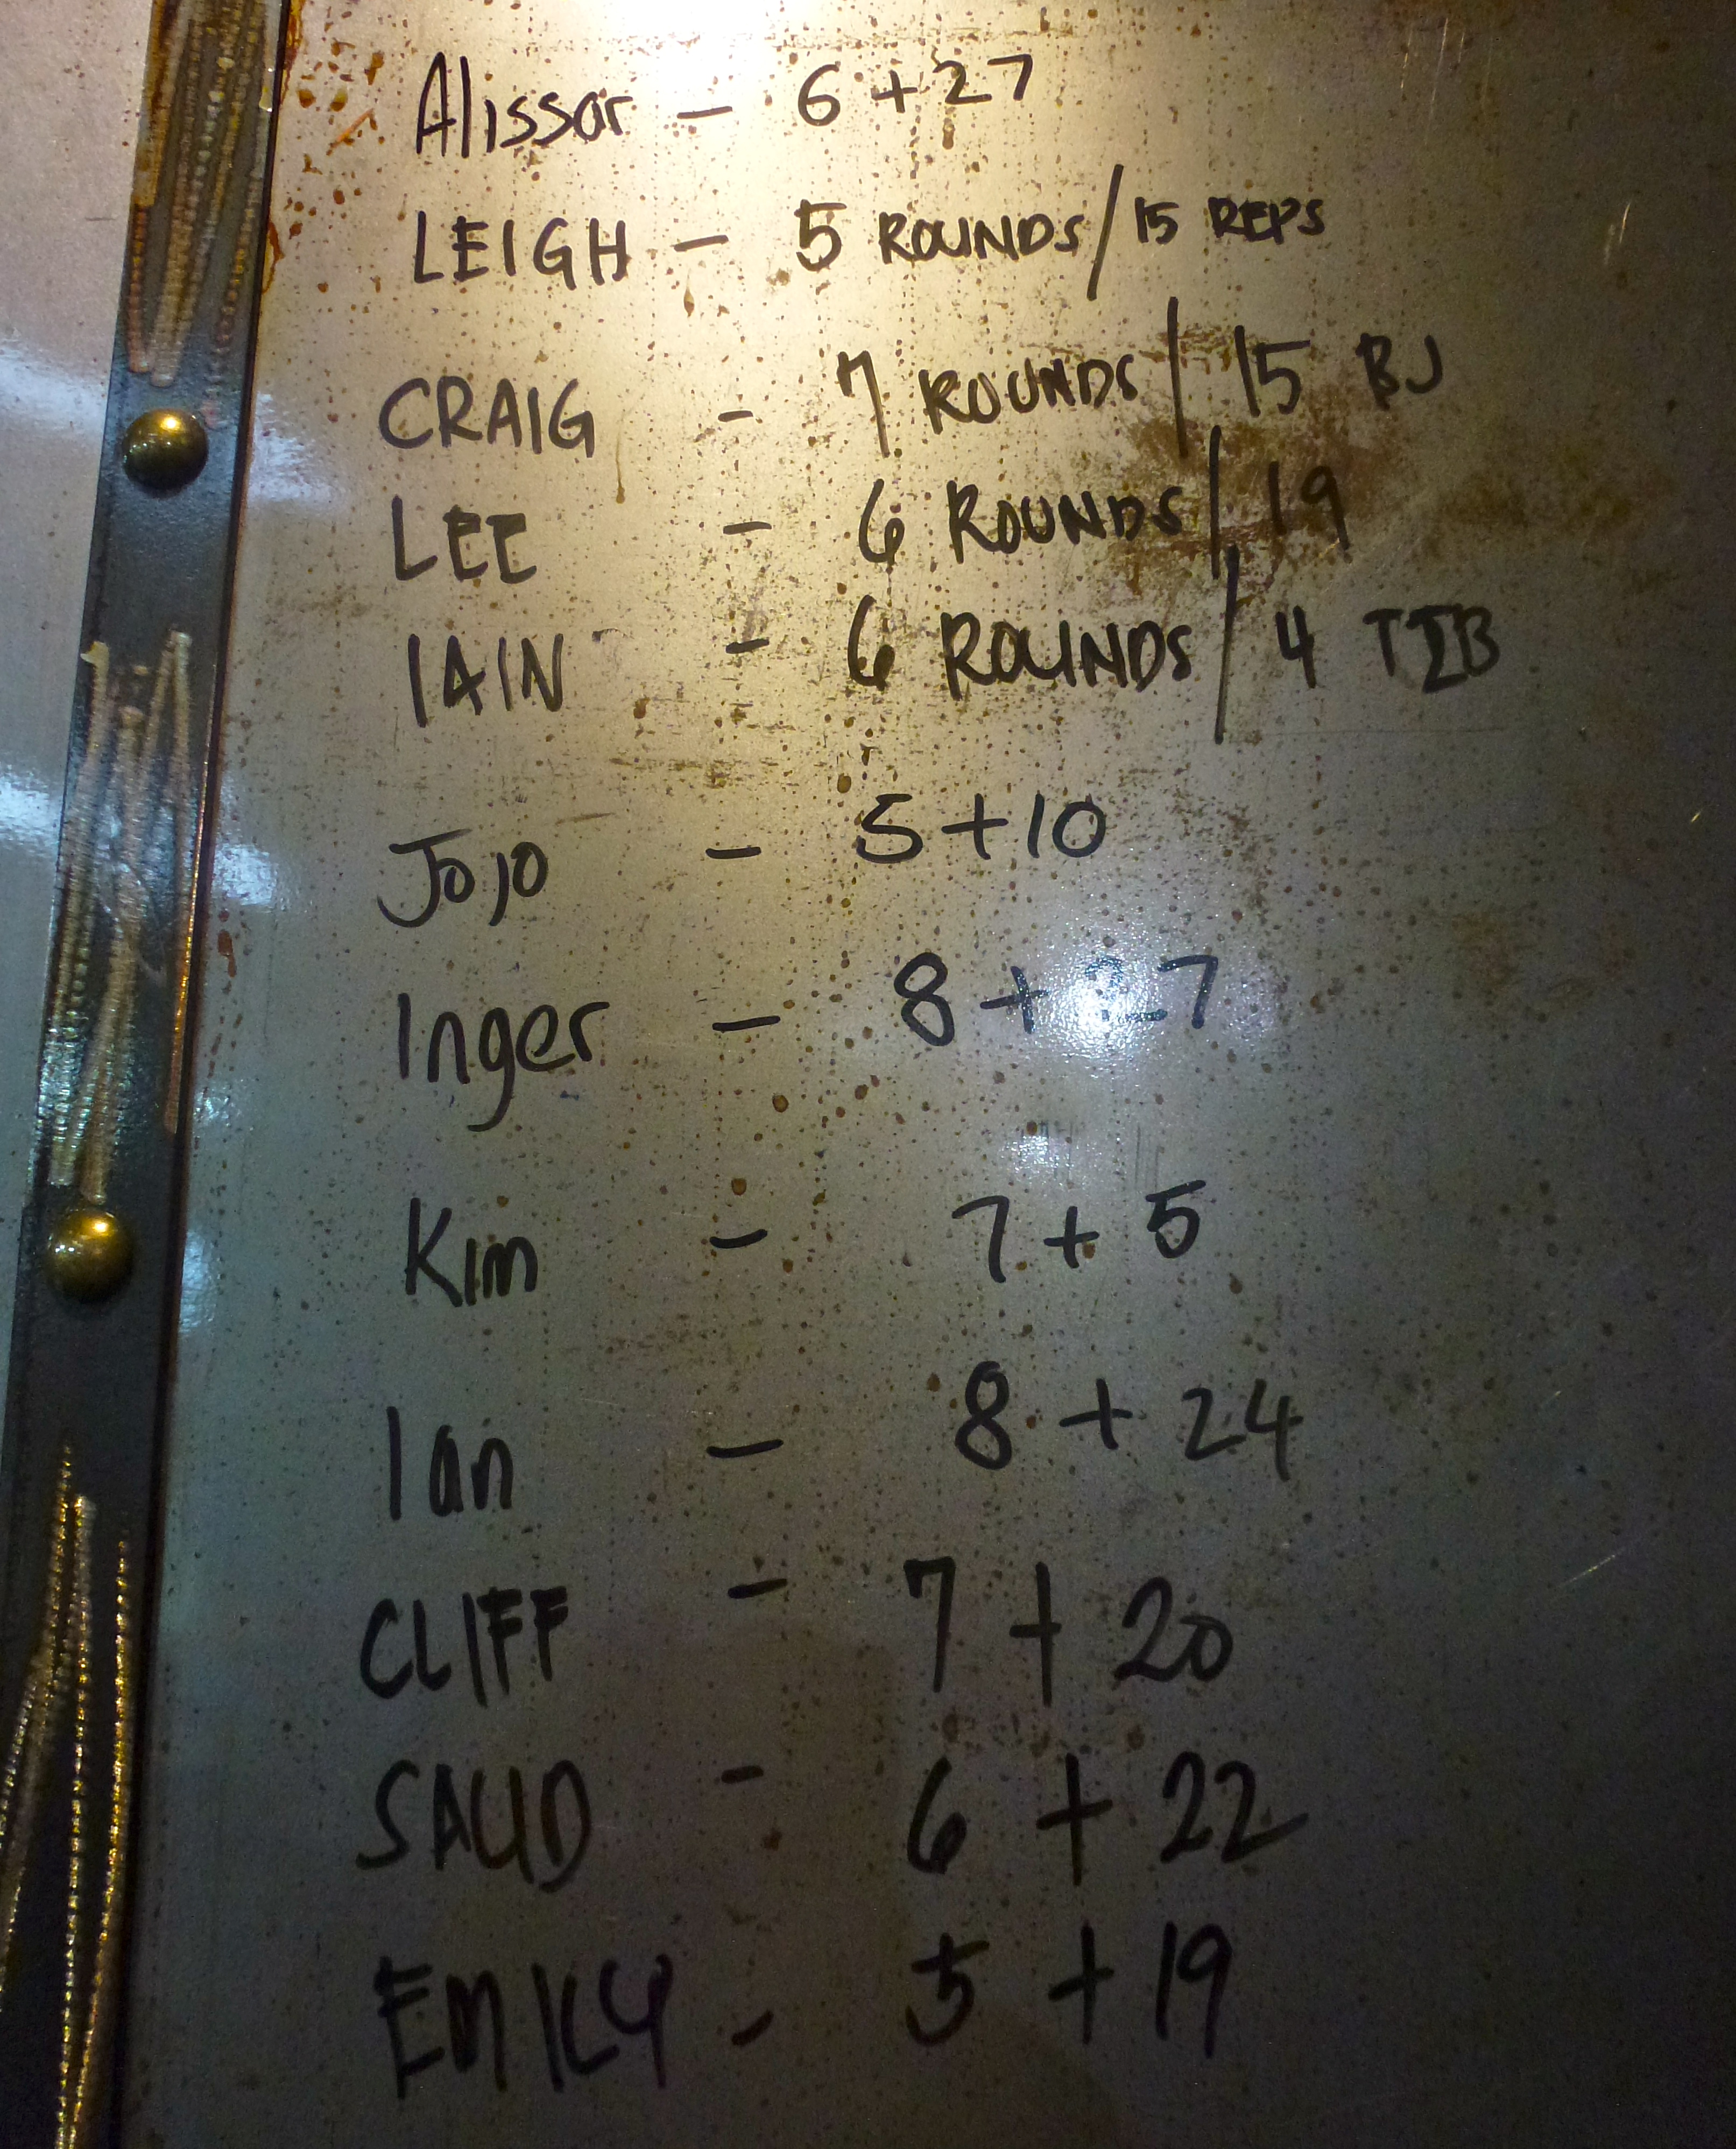 Alissar - 6 + 27
LEIGH - 5 ROUNDS/15 REPS
CRAIG - 7 ROUNDS/15 BJ
LEE - 6 ROUNDS/19
IAIN - 6 ROUNDS/4 T2B
JoJo - 5+10
Inger - 8 + 27
Kim - 7 + 5
Ian - 8 + 24
CLIFF - 7 + 20
SAUD - 6 + 22
EMILY - 5 + 19